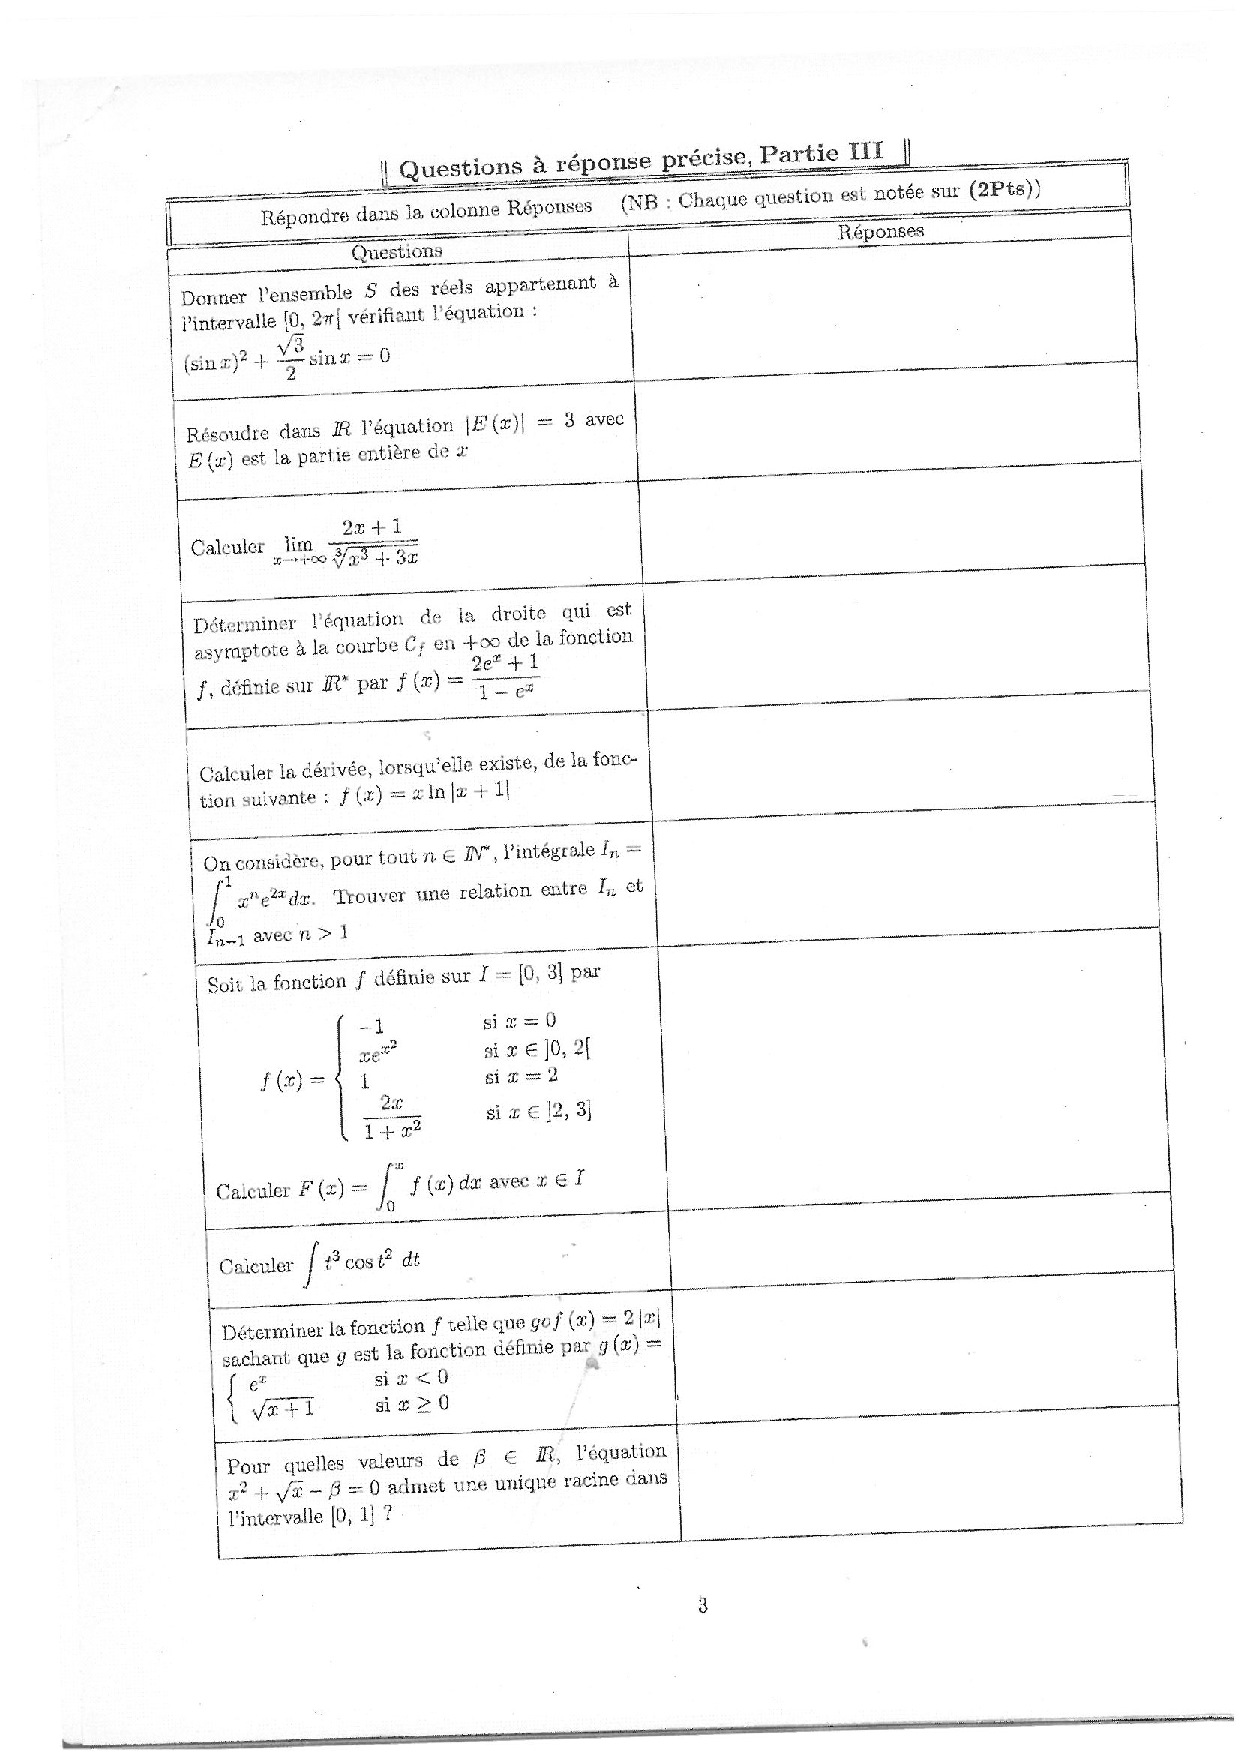 Questions à réponse précise, Partie III
Répondre dans la colonne Réponses (NB : Chaque question est notée sur (2Pts))
Questions
Réponses
Donner l'ensemble S des réels appartenant à
l'intervalle [0, 2π[ vérifiant l'équation :
(sin x)² + √3/2 sin x = 0
Résoudre dans ℝ l'équation |E (x)| = 3 avec
E (x) est la partie entière de x
Calculer lim x→+∞ (2x + 1)/∛(x³ + 3x)
Déterminer l'équation de la droite qui est
asymptote à la courbe C_f en +∞ de la fonction
f, définie sur ℝ* par f (x) = (2eˣ + 1)/(1 − eˣ)
Calculer la dérivée, lorsqu'elle existe, de la fonc-
tion suivante : f (x) = x ln |x + 1|
On considère, pour tout n ∈ ℕ*, l'intégrale Iₙ =
∫₀¹ xⁿe²ˣdx. Trouver une relation entre Iₙ et
Iₙ₋₁ avec n > 1
Soit la fonction f définie sur I = [0, 3] par
f (x) = {
−1 si x = 0
xe^x² si x ∈ ]0, 2[
1 si x = 2
2x/(1 + x²) si x ∈ ]2, 3]
Calculer F (x) = ∫₀ˣ f (x) dx avec x ∈ I
Calculer ∫ t³ cos t² dt
Déterminer la fonction f telle que gof (x) = 2 |x|
sachant que g est la fonction définie par g (x) =
{ eˣ si x < 0
√(x + 1) si x ≥ 0
Pour quelles valeurs de β ∈ ℝ, l'équation
x² + √x − β = 0 admet une unique racine dans
l'intervalle [0, 1] ?
3